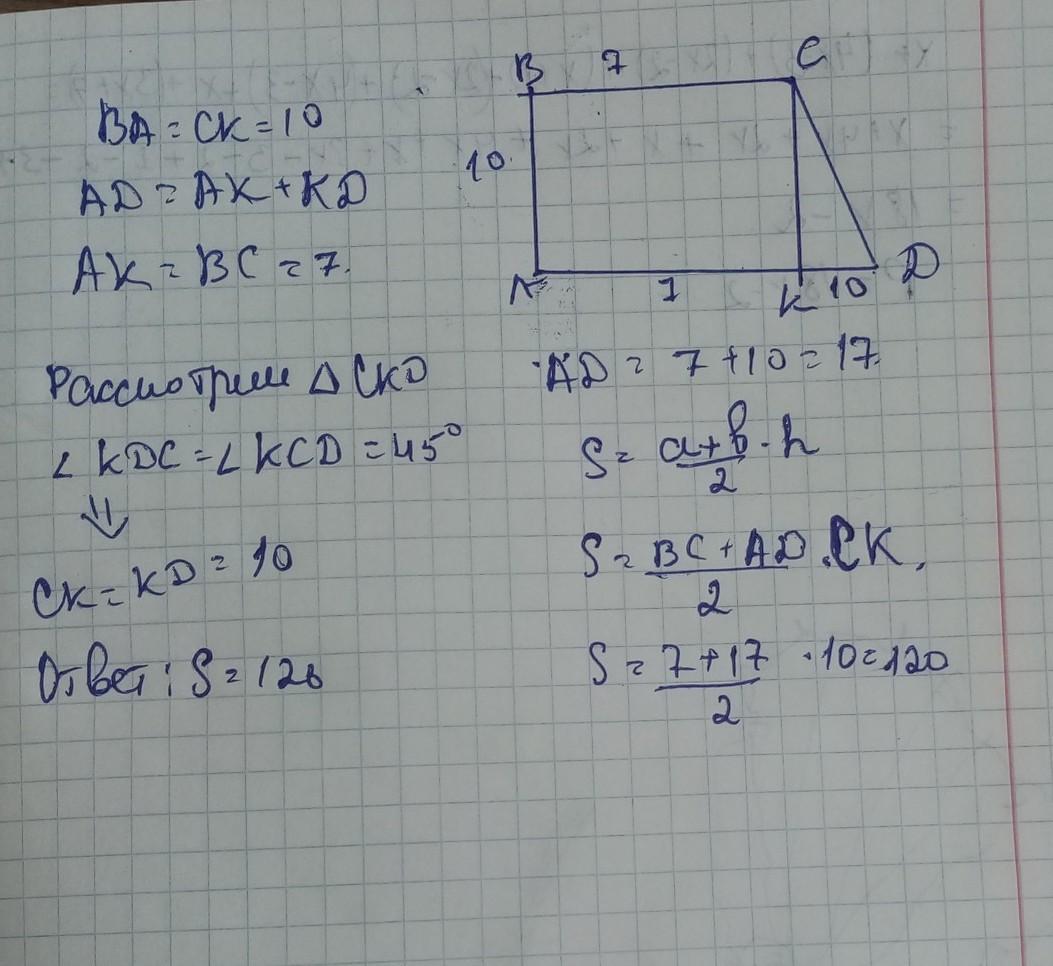 BA = CK = 10
AD = AK + KD
AK = BC = 7.
B 7 C
10
A 7 K 10 D
Рассмотрим Δ CKD
∠ KDC = ∠ KCD = 45°
⇓
CK = KD = 10
Ответ: S = 120
AD = 7 + 10 = 17
S = a+b/2 · h
S = BC + AD/2 · CK.
S = 7+17/2 · 10 = 120